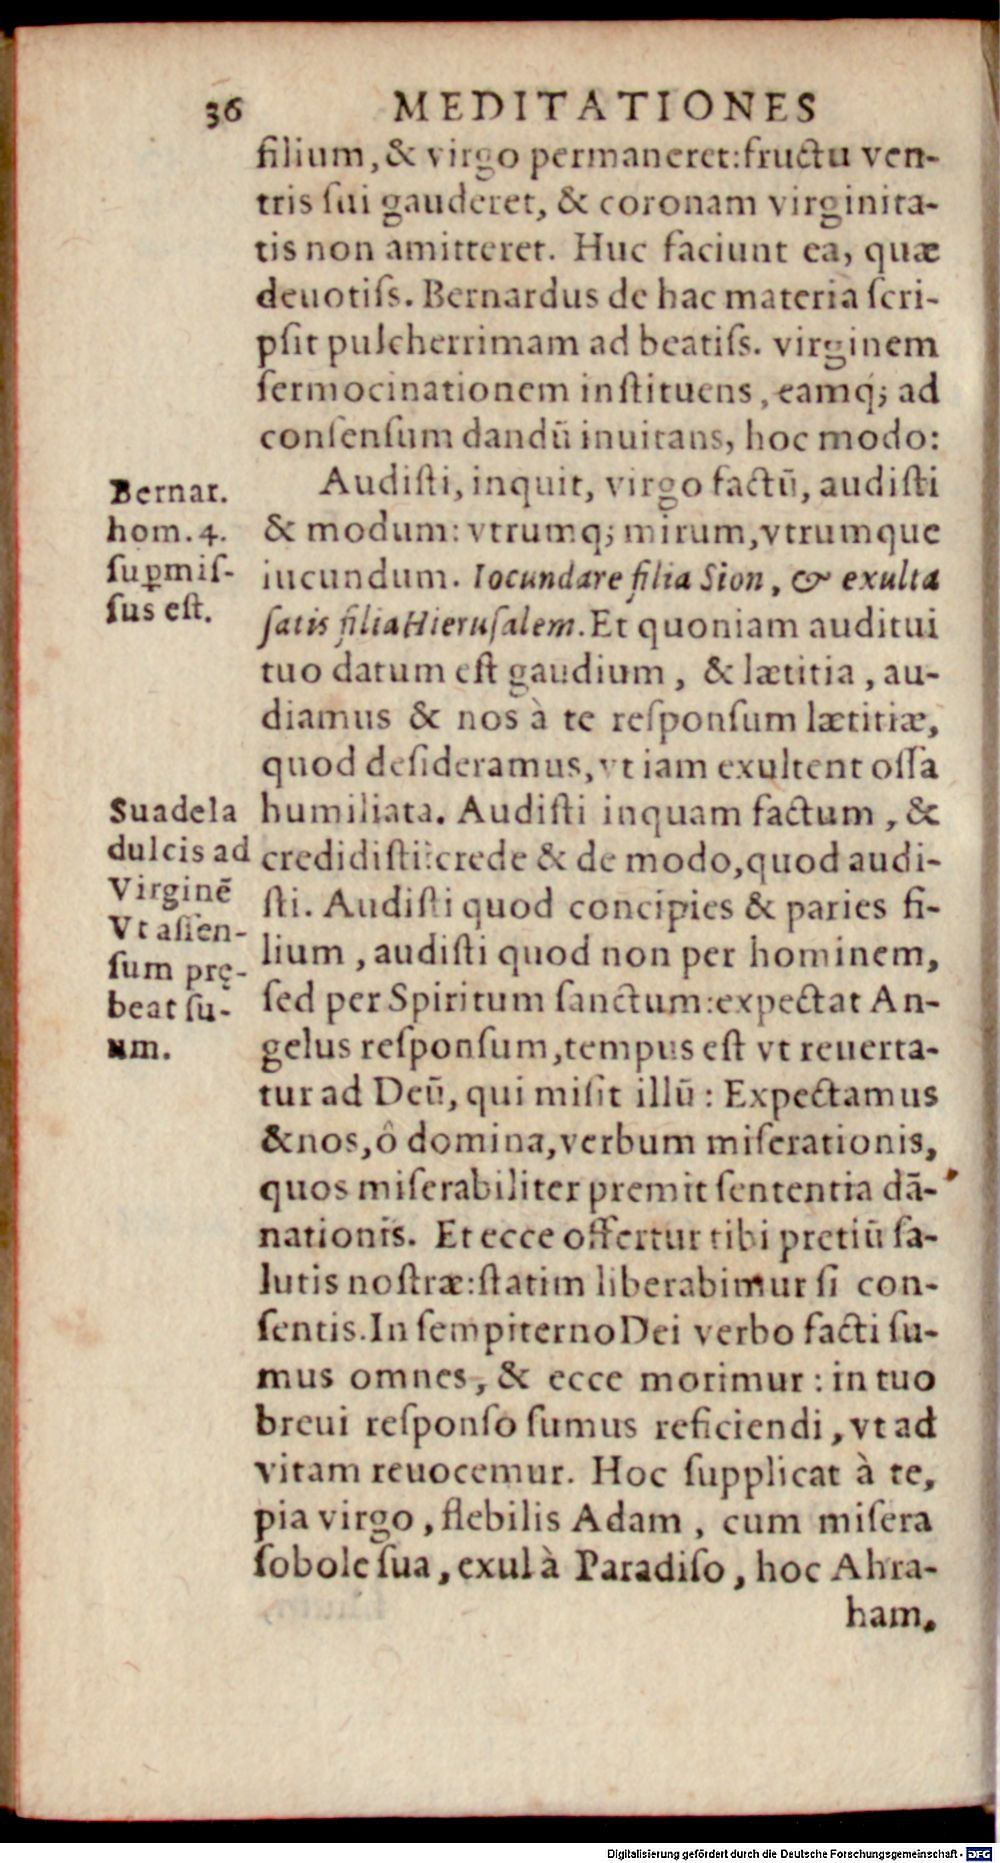 36 MEDITATIONES
filium, & virgo permaneret: fructu ven-
tris ſui gauderet, & coronam virginita-
tis non amitteret. Huc faciunt ea, quæ
deuotiſs. Bernardus de hac materia ſcri-
pſit pulcherrimam ad beatiſs. virginem
ſermocinationem inſtituens, eamq́; ad
conſenſum dandū inuitans, hoc modo:
Audiſti, inquit, virgo factū, audiſti
& modum: vtrumq; mirum, vtrumque
iucundum. Iocundare filia Sion, & exulta
ſatis filia Hieruſalem. Et quoniam auditui
tuo datum eſt gaudium, & lætitia, au-
diamus & nos à te reſponſum lætitiæ,
quod deſideramus, vt iam exultent oſſa
humiliata. Audiſti inquam factum, &
credidiſti: crede & de modo, quod audi-
ſti. Audiſti quod concipies & paries fi-
lium, audiſti quod non per hominem,
ſed per Spiritum ſanctum: expectat An-
gelus reſponſum, tempus eſt vt reuerta-
tur ad Deū, qui miſit illū: Expectamus
& nos, ô domina, verbum miſerationis,
quos miſerabiliter premit ſententia dā-
nationis. Et ecce offertur tibi pretiū ſa-
lutis noſtræ: ſtatim liberabimur ſi con-
ſentis. In ſempiterno Dei verbo facti ſu-
mus omnes, & ecce morimur: in tuo
breui reſponſo ſumus reficiendi, vt ad
vitam reuocemur. Hoc ſupplicat à te,
pia virgo, flebilis Adam, cum miſera
ſobole ſua, exul à Paradiſo, hoc Abra-
ham.
Bernar.
hom. 4.
ſuꝑmiſ-
ſus eſt.
Suadela
dulcis ad
Virginē
Vt aſſen-
ſum prę-
beat ſu-
um.
Digitalisierung gefördert durch die Deutsche Forschungsgemeinschaft - DFG